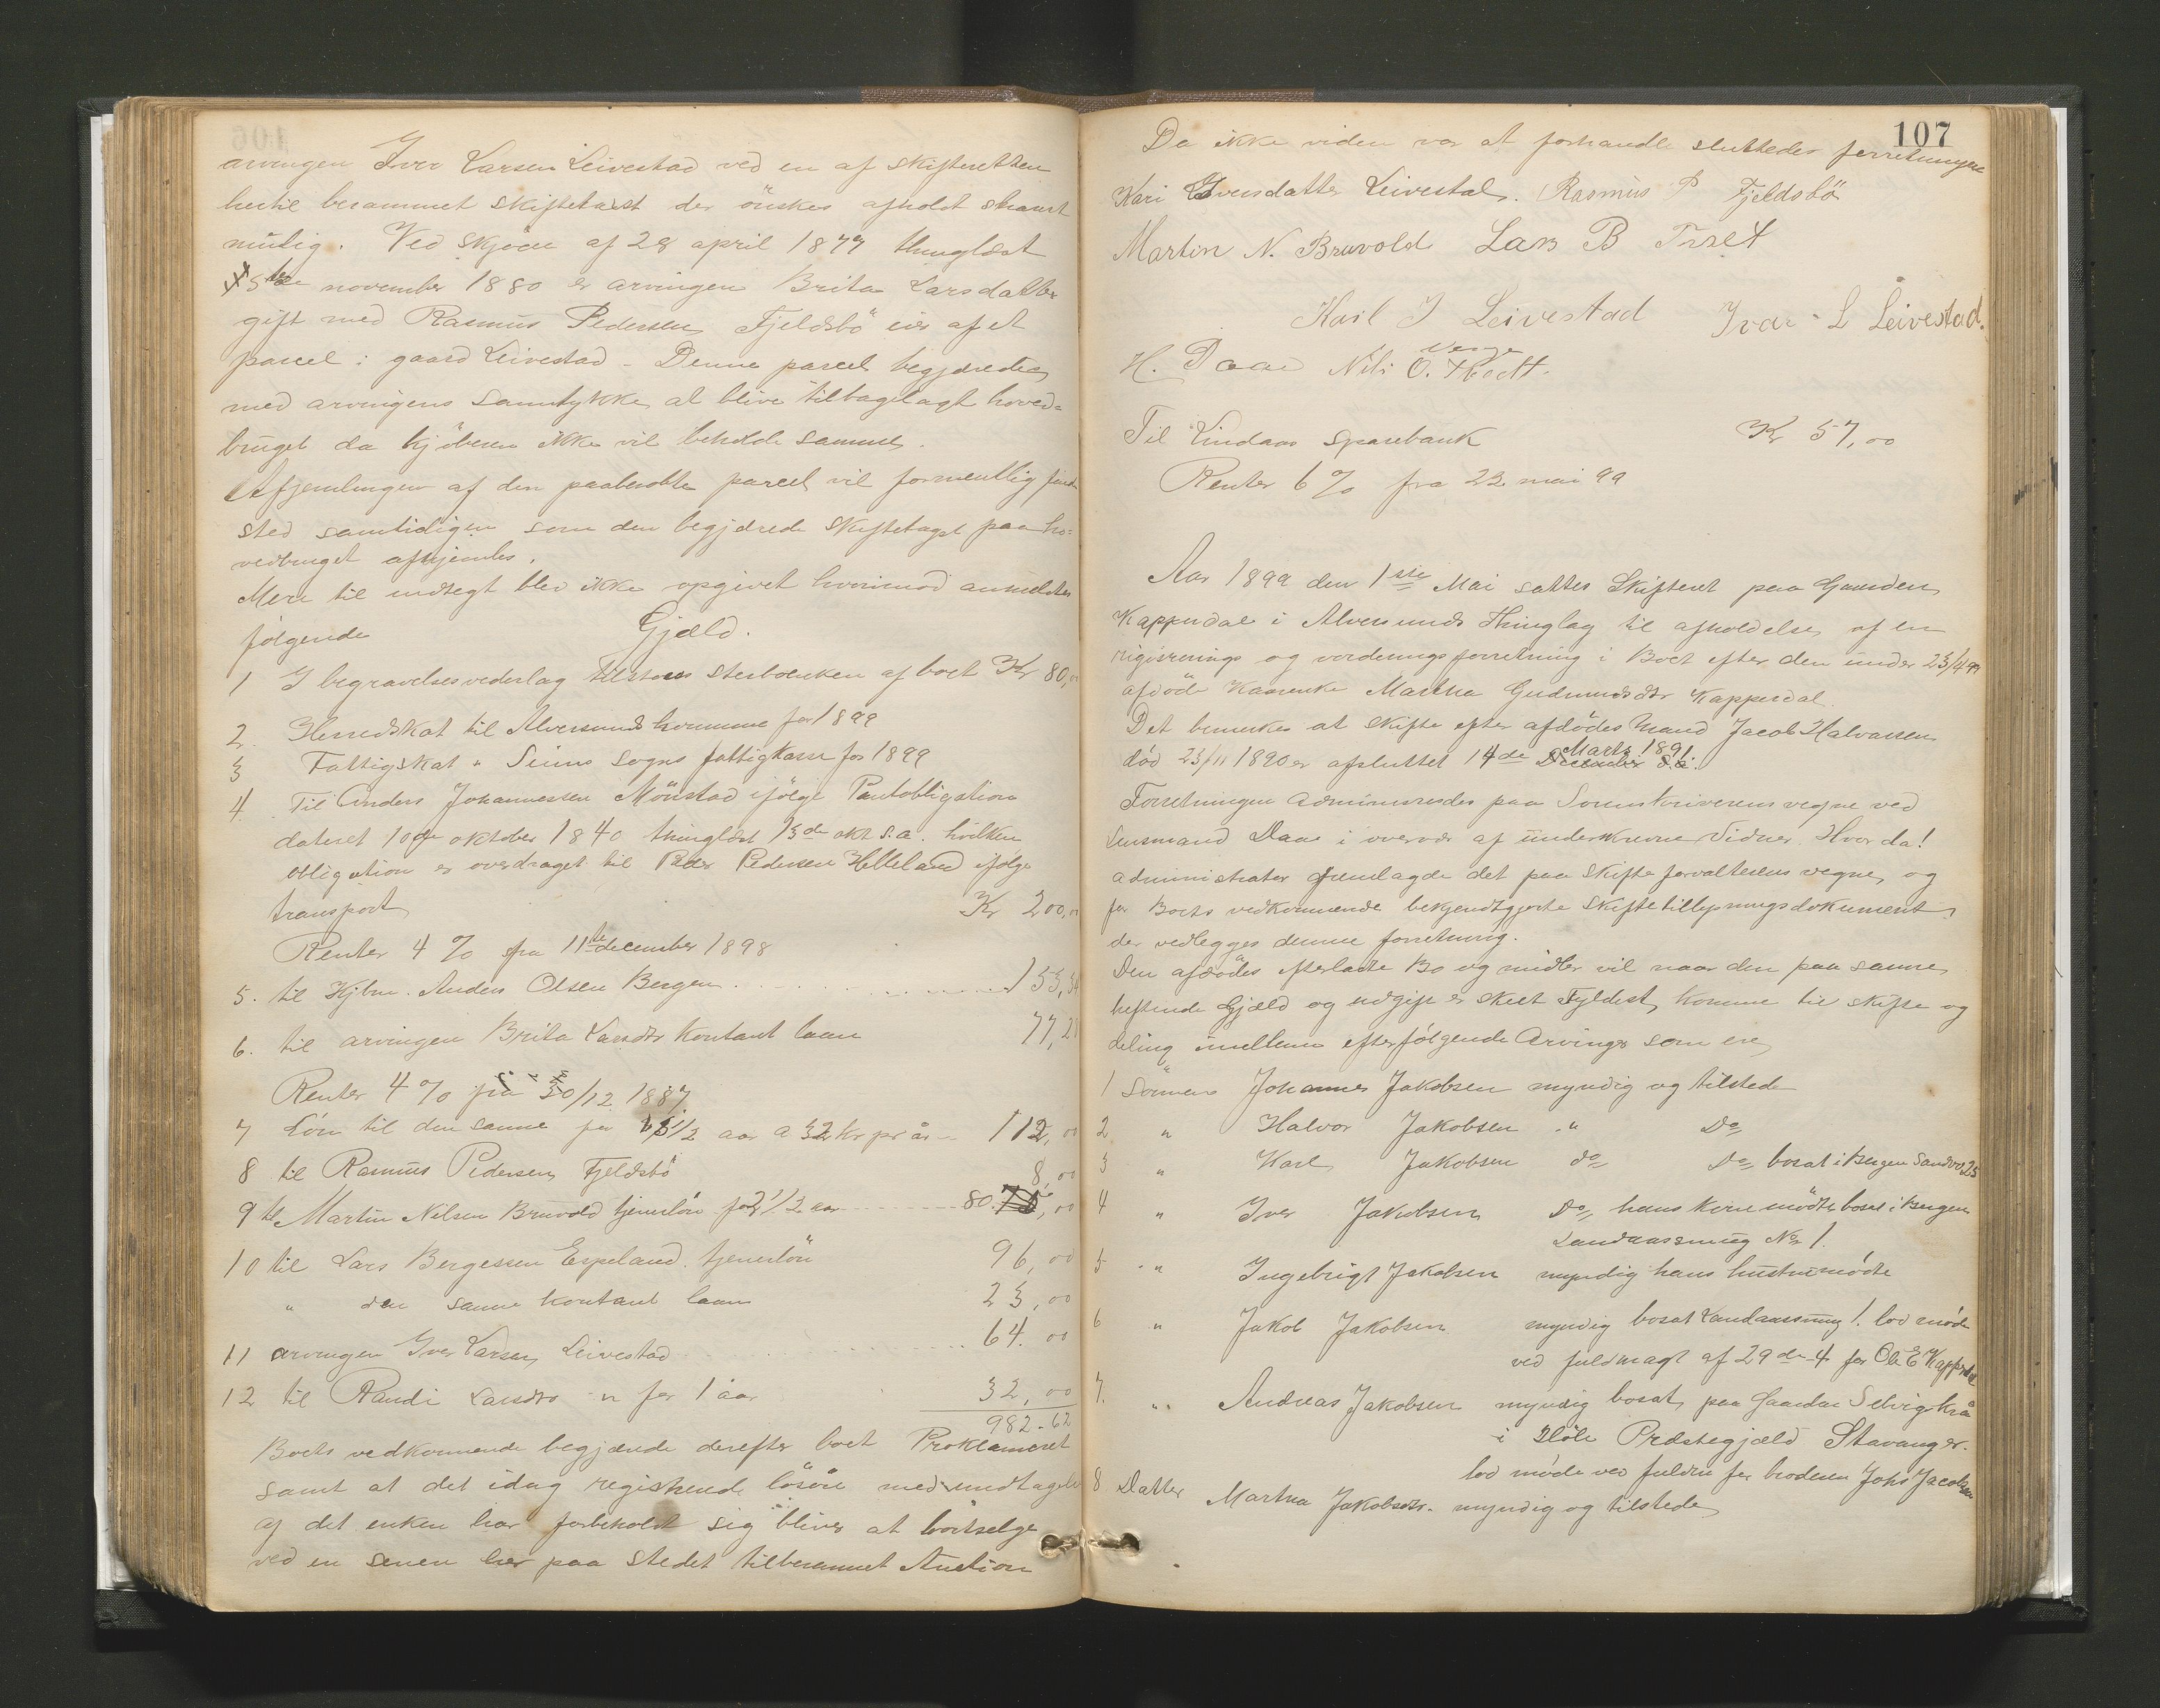 arvingen Iver Larsen Leivestad ved en af skifteretten
hertil berammet skiftetaxt der önskes afholdt snarest
mulig. Ved skjöde af 28 april 1879 thinglæst
5te november 1880 er arvingen Brita Larsdatter
gift med Rasmus Pedersen Fjeldsbö eier af et
parcel i gaard Leivestad - Denne parcel begjæredes
med arvingens samtykke at blive tilbagelagt hoved=
bruget da kjöberen ikke vil beholde samme.
Afhjemlingen af den paaberobte parcel vil formentlig finde
sted samtidigen som den begjærede skiftetaxt paa ho=
vedbruget afhjemles.
Mere til indtegt blev ikke opgivet hvorimod anmeldtes
følgende Gjæld.
1 I begravelsesvederlag tilstaaes sterboenken af boet Kr 80,00
2. Herredskat til Alversunds kommune for 1899
3 Fattigskat " Seims sogns fattigkasse for 1899
4. Til Anders Johannessen Mönstad ifölge Pantobligation
dateret 10de oktober 1840 thinglæst 13de okt s.a. hvilken
obligation er overdraget til Peder Pedersen Helleland ifölge
transport Kr 200,00
Renter 4 % fra 11te december 1898
5. til Kjbm. Anders Olsen Bergen 153,34
6. til arvingen Brita Larsdtr kontant laan 77,28
Renter 4 % fra 30/12 1887
7 Lön til den samme for 3 1/2 aar a 32 kr pr år 112,00
8 til Rasmus Pedersen Fjeldsbö 8,00
9 til Martin Nilsen Bruvold tjenerlön for 2 1/2 aar 80. 75,00
10 til Lars Bergessen Espeland tjenerlön 96,00
" den samme kontant laan 23,00
11 arvingen Iver Larsen Leivestad 64.00
12 til Randi Larsdtr " for 1 aar 32,00
982-62
Boets vedkommende begjærede derefter boet Proklameret
samt at det idag registrerede lösöre med undtagelse
af det enken har forbeholdt sig bliver at bortselge
ved en senere her paa stedet tilberammet Auction
107
Da ikke viden var at forhandle sluttedes forretningen
Kari Iversdatter Leivestad. Rasmus P Fjeldsbö
Martin N. Bruvold Lars B
Karl I Leivestad Ivar L Leivestad.
Verge
H. Daae Nils O.
Til Lindaas Sparebank Kr 57,00
Renter 6 % fra 22 mai 99
Aar 1899 den 1ste Mai sattes Skifteret paa Gaarden
Kappesdal i Alversunds Thinglag til afholdelse af en
registrerings og vurderingsforretning i Boet efter den under 23/4 99
afdöde Kaarenke Martha Gudmundsdtr Kappesdal.
Det bemerkes at skifte efter afdödes Mand Jacob Halvorsen
Marts 1891.
död 23/11 1890 er afsluttet 14de December s.a.
Forretningen administreredes paa Sorenskriverens vegne ved
Lensmand Daae i overvær af underskrevne Vidner. Hvor da!
administrator fremlagde det paa Skifteforvalterens vegne, og
for Boets vedkommende bekjendtgjorte Skiftetillysningsdokument,
der vedlegges denne forretning.
Den afdödes efterladte Bo og midler vil naar den paa samme
heftende Gjæld og udgift er skeet Fyldest, komme til skifte og
deling imellem efterfölgende Arvinger som ere,
1 Sönnen Johannes Jakobsen myndig og tilstede
2 " Halvor Jakobsen " Do
3 " Karl Jakobsen do Do bosat i Bergen Sandvg 25
4 " Iver Jakobsen Do hans kone mödte bosat i Bergen
Landaassmug No 1.
5 " Ingebrigt Jakobsen myndig hans hustru mødte
6 " Jakob Jakobsen myndig bosat Landaassmug 1. lod möde
ved fuldmagt af 29de 4 for Ole E Kappesdal
7. " Andreas Jakobsen myndig bosat paa Gaarden Selvigkrå
i Höle Præstegjæld Stavanger.
lod møde ved fuldm for broderen Johs Jacobsen
8 Datter Martha Jakobsdtr. myndig og tilstede